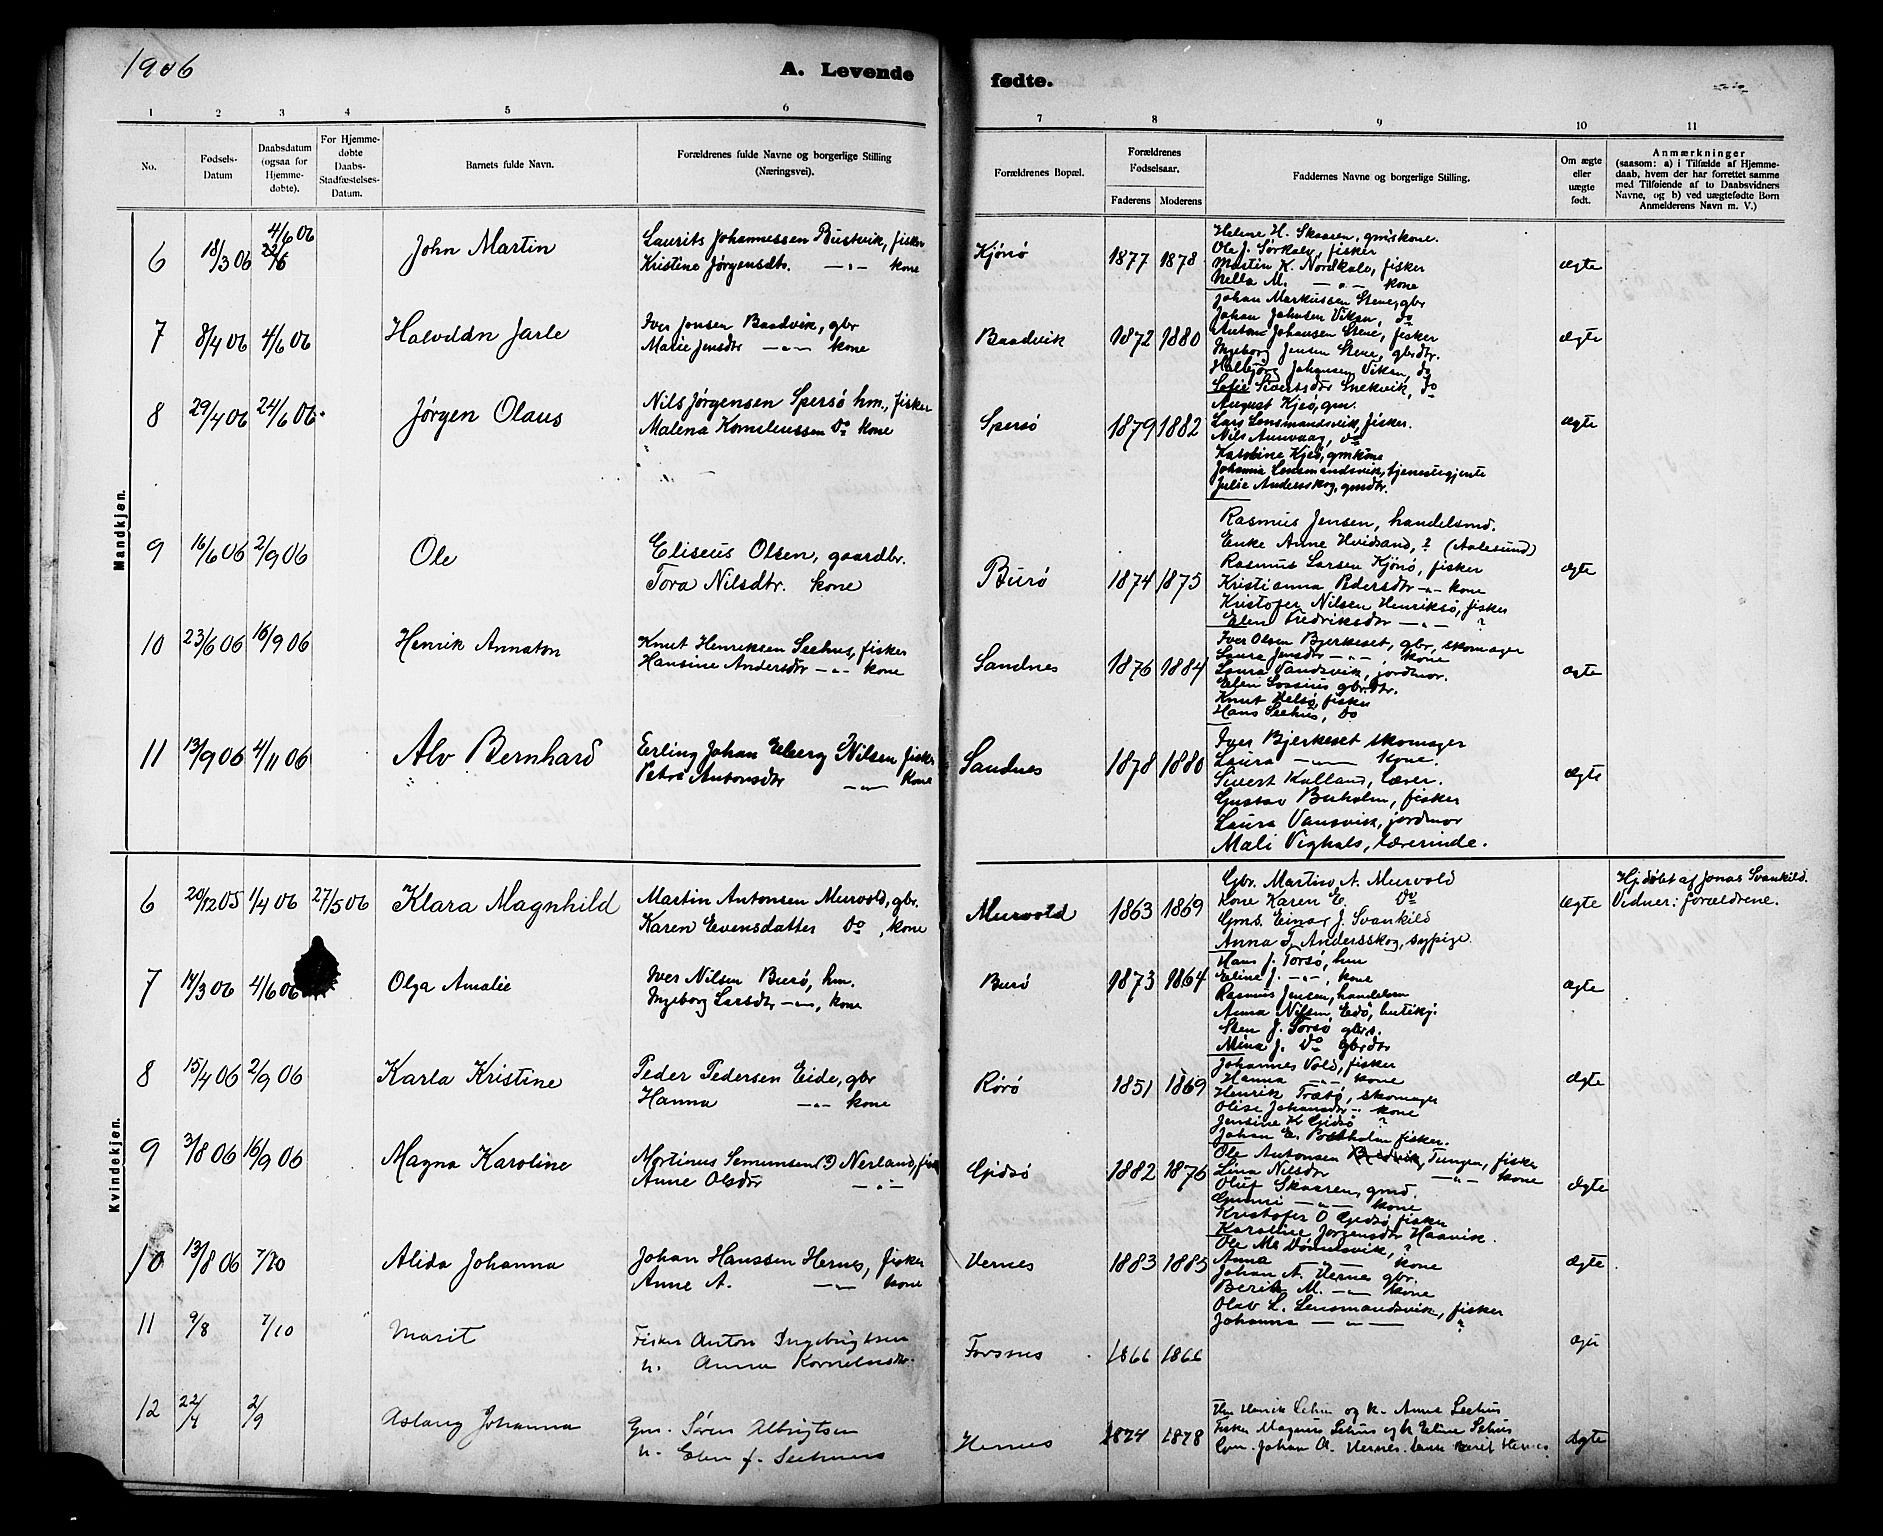 1906
A. Levende fødte.
1 2 3 4 5 6 7 8 9 10 11
No.
Fødsels-Datum
Daabsdatum (ogsaa for Hjemmedøbte).
For Hjemmedøbte Daabs-Stadfæstelses-Datum.
Barnets fulde Navn.
Forældrenes fulde Navne og borgerlige Stilling (Næringsvei).
Forældrenes Bopæl.
Forældrenes Fødselsaar.
Faderens Moderens
Faddernes Navne og borgerlige Stilling.
Om ægte eller uægte født.
Anmærkninger
(saasom: a) i Tilfælde af Hjemmedaab, hvem der har forrettet samme med Tilføiende af to Daabsvidners Navne, og b) ved uægtefødte Børn Anmelderens Navn m. V.)
Mandkjøn.
6 18/3 06 4/6 06 John Martin
Laurits Johannessen Bustvik, fisker
Kristine Jørgensdtr. —"— kone
Kjønø 1877 1878
Helene H. Skaaren, gmskone.
Ole J. Sørkalv, fisker
Martin K. Nordkalv, fisker
Nella M. —"— kone
ægte
7 8/4 06 4/6 06 Halvddn Jarle
Iver Jonsen Baadvik, gbr
Marie Jensdtr —"— kone
Baadvik 1872 1880
Johan Markussen Stene, gbr
Johan Johnsen Vikan, do
Anton Johansen Stene, fisker
Ingeborg Jensen Stene, gbrdtr.
Halbjørg Johansen Vikan, do
Sofie Sivertsdtr Snekvik, do
ægte
8 29/4 06 24/6 06 Jørgen Olaus
Nils Jørgensen Spersø hm., fisker
Malena Korneliussen do kone
Spersø 1879 1882
August Kjesø, gm.
Lars Lensmandsvik, fisker.
Nils Aunvaag, do
Karoline Kjesø, gmkone
Johanna Lensmandsvik, tjenestegjente
Julie Andersskog, gmdtr.
ægte
9 16/6 06 2/9 06 Ole
Eliseus Olsen, gaardbr.
Tora Nilsdtr. kone
Burø 1874 1875
Rasmus Jensen, handelsmd.
Enke Anne Hvidsand, ? (Aalesund)
Rasmus Larsen Kjønø, fisker
Kristianna Pedersdtr —"— kone
Kristofer Nilsen Henriksø, fisker
Elen Fredriksdtr —"— ?
ægte
10 23/6 06 16/9 06 Henrik Annaton
Knut Henriksen Seehus, fisker
Hansine Andersdtr —"— kone
Sandnes 1876 1884
Iver Olsen Bjerkeset, gbr, skomager
Laura Jensdtr —"—, kone
Laura Vandsvik, jordmor.
Elen Lossius gbr.dtr.
Knut Helsø, fisker
Hans Seehus, do
ægte
11 13/9 06 4/11 06 Alv Bernhard
Erling Johan Eberg Nilsen fisker
Petra Antonsdtr —"— kone
Sandnes 1878 1880
Iver Bjerkeset skomager
Laura —"— kone.
Sivert Kalland, lærer.
Gustav Burholm, fisker
Laura Vansvik, jordmor
Mali Vighals, lærerinde.
ægte
Kvindekjøn.
6 20/12 05 1/4 06 27/5 06 Klara Magnhild
Martin Antonsen Murvold, gbr.
Karen Evensdatter do, kone
Murvold 1863 1869
Gbr. Martin A. Murvold
Kone Karen E. do
Gms. Einar J. Svankild
Anna T. Andersskog, sypige.
ægte
Hj.døbt af Jonas Svankild.
Vidner: forældrene.
7 14/3 06 4/6 06 Olga Amalie
Iver Nilsen Burø, hm.
Ingeborg Larsdtr —"—, kone
Burø 1873 1864
Hans J. Torsø, hm
Eline J. —"—, kone
Rasmus Jensen, handelsm
Anna Nilsen, Eidø, butikj.
Sten J. Torsø gbr.s.
Mina J. do gbrdtr
ægte
8 15/4 06 2/9 06 Karla Kristine
Peder Pedersen Eide, gbr
Hanna —"— kone
Rørø 1851 1869
Johannes Vold, fisker
Hanna —"— kone
Henrik Træbø, skomager
Olise Johansdtr —"— kone
Jensine K Gjdsø ?
Johan E. Postholm fisker.
ægte
9 3/8 06 16/9 06 Magna Karoline
Martinus Semunsen (?) Nerland, fisk
Anne Olsdtr —"—
Gjdsø 1882 1876
Ole Antonsen Tungen, fisker
Lina Nilsdtr —"— kone
Oluf Skaaren, gmd.
Gunni —"— kone
Kristofer O Gjedsø, fisker
Karoline Jørgensdtr Haavik.
ægte
10 13/8 06 7/10 Alida Johanna
Johan Hanssen Hernes, fisker
Anne A. —"— kone
Hernes 1883 1885
Anna —"— kone
Johan A. Herne gbr.
Berit M. —"— kone
Olav L. Lensmandsvik, fisker
Johanna —"— ?
ægte
11 9/8 7/10 Marit
Fisker Anton Ingebrigtsen
h. Anna Kornelusdtr.
Forsnes 1866 1866
ægte
12 22/4 2/9 Aslaug Johanna
Gm. Søren Albrigtsen
h. Elen J.
Hernes 1874 1878
Henrik Sehus og k. Anna Seehus
Fisker Magnus Sehus og h Eline Sehus
Gm. Johan A. Hernes. Berit Hernes
ægte